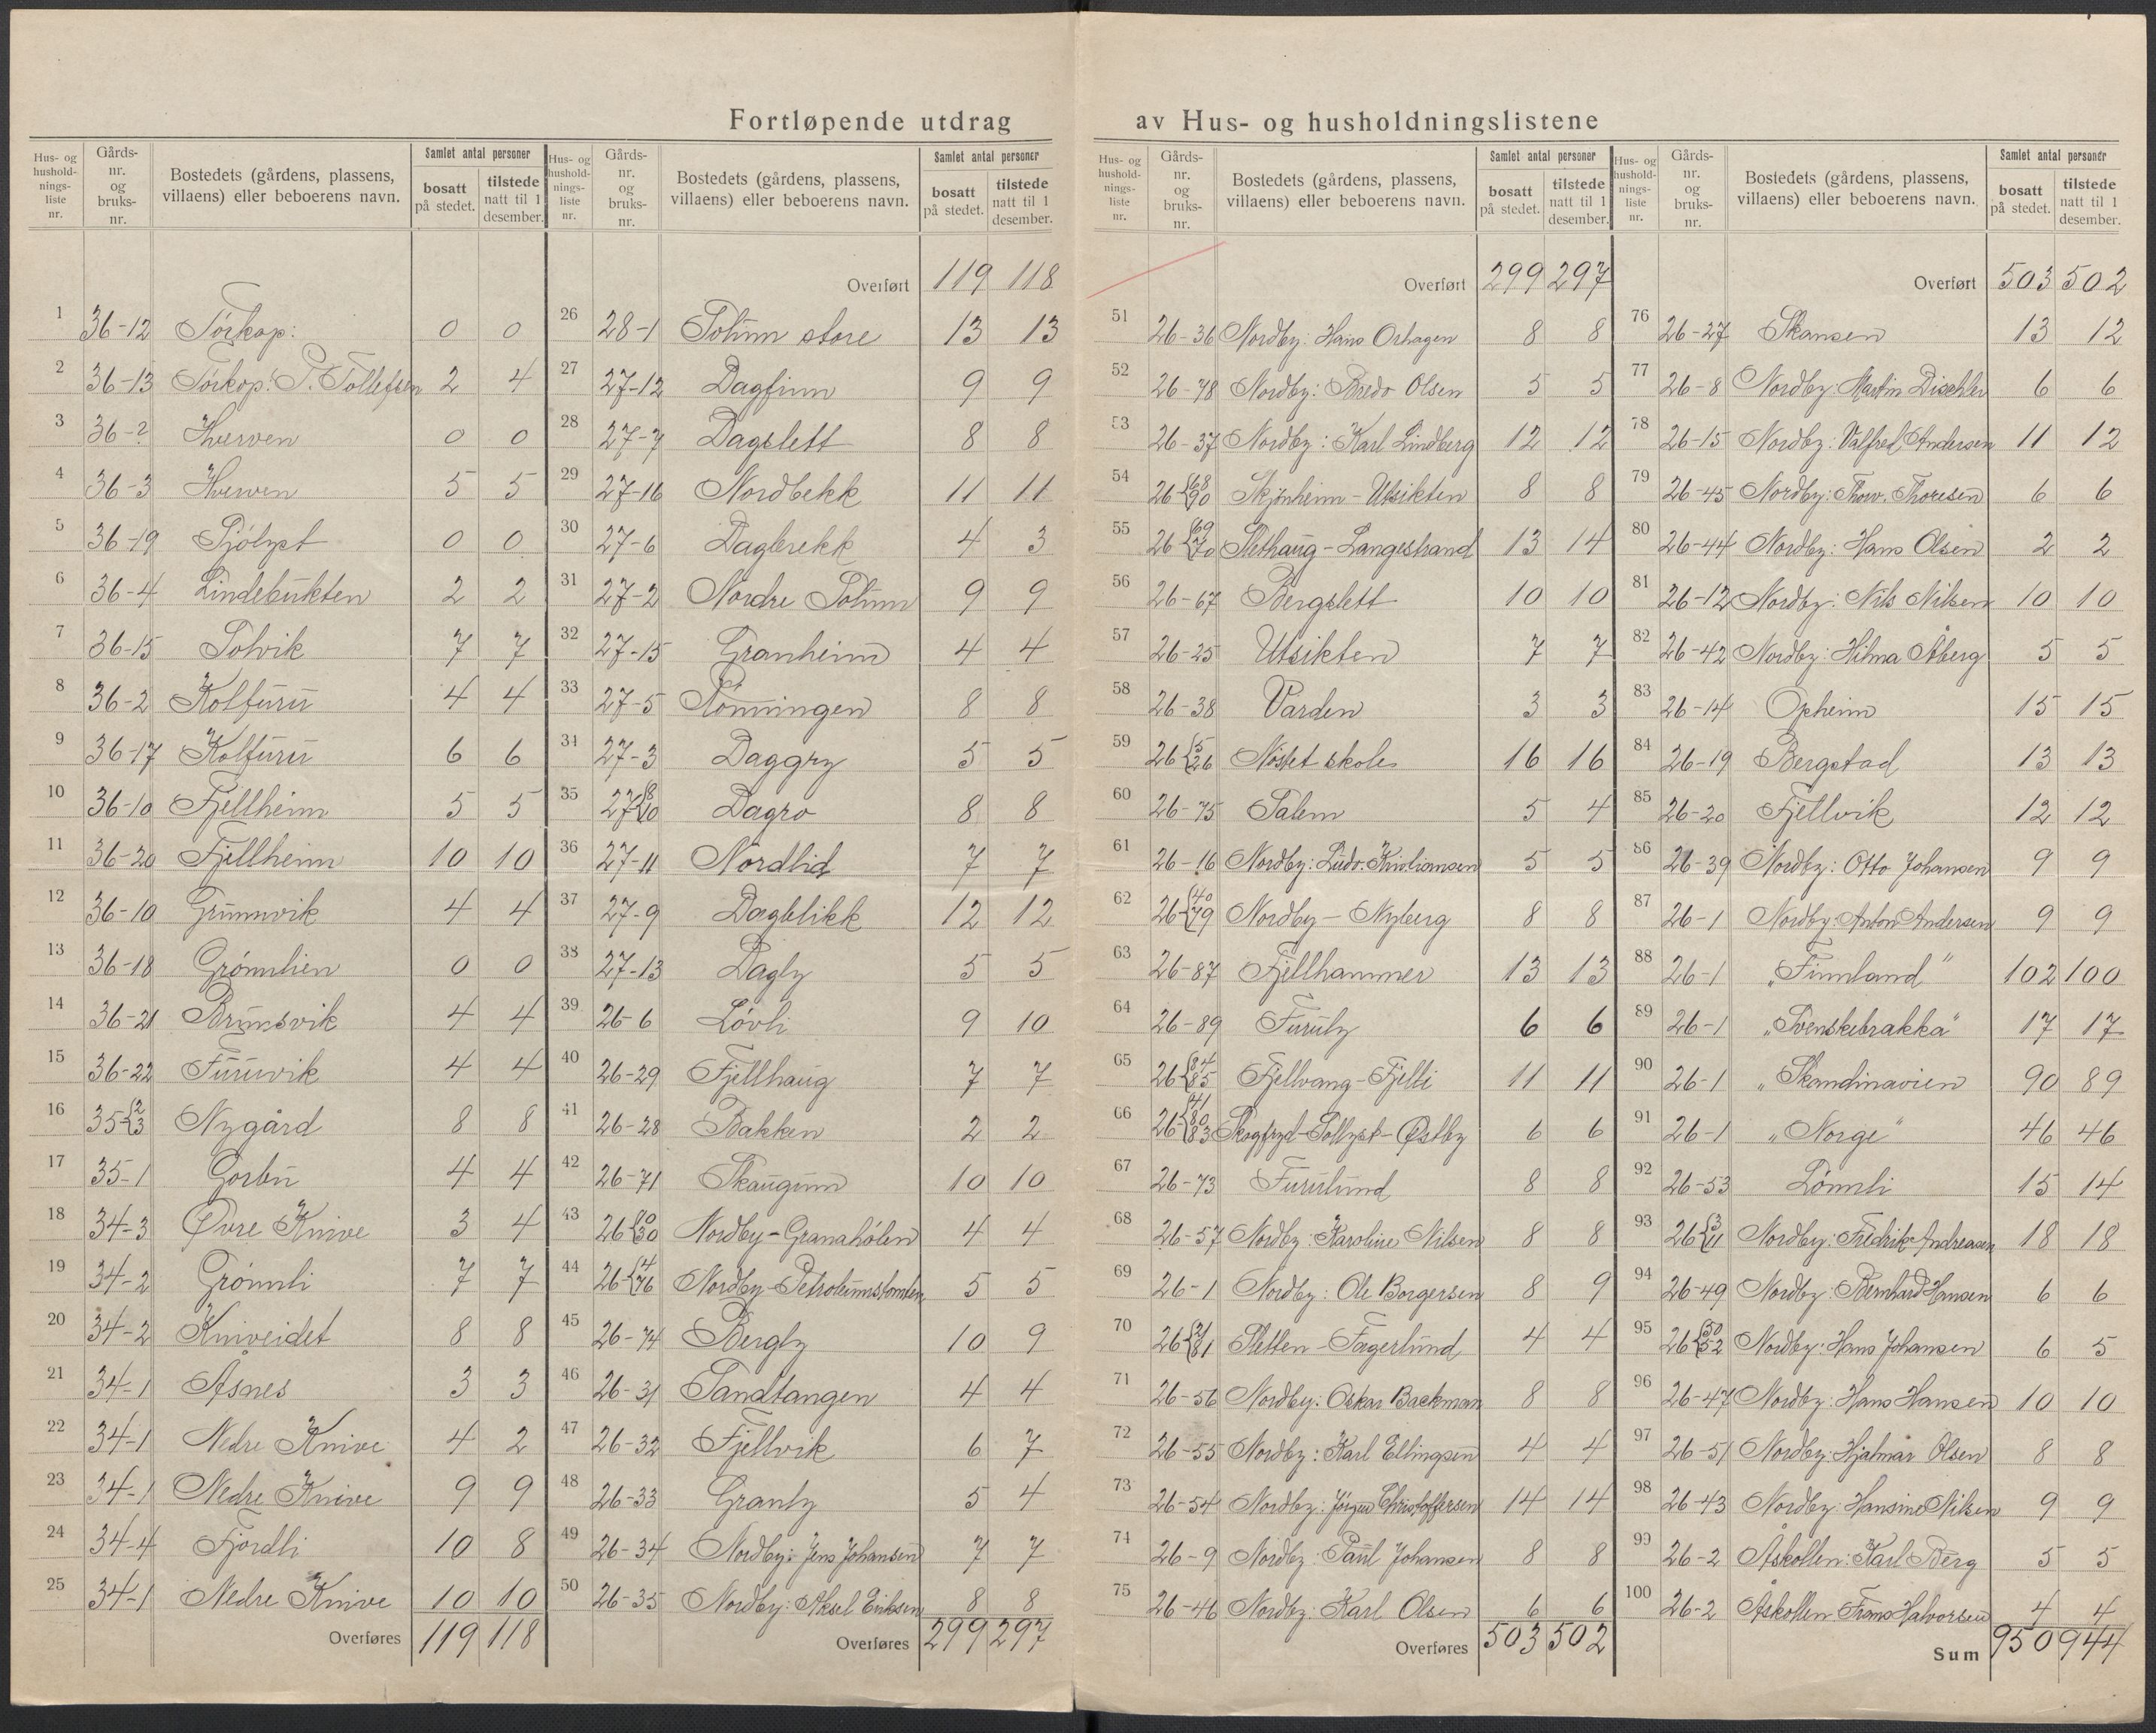 Fortløpende utdrag av Hus- og husholdningslistene
Hus- og husholdnings-liste nr. | Gårds-nr. og bruks-nr. | Bostedets (gårdens, plassens, villaens) eller beboerens navn. | Samlet antal personer | bosatt på stedet. | tilstede natt til 1 desember.
1 36-12 Torkop: 0 0
2 36-13 Torkop: P. Tollefsen 2 4
3 36-2 Hverven 0 0
4 36-3 Hverven 5 5
5 36-19 Sjölyst 0 0
6 36-4 Lindebukten 2 2
7 36-15 Solvik 7 7
8 36-2 Kolfuru 4 4
9 36-17 Kolfuru 6 6
10 36-10 Fjellheim 5 5
11 36-20 Fjellheim 10 10
12 36-10 Grunnvik 4 4
13 36-18 Grönnlien 0 0
14 36-21 Brunsvik 4 4
15 36-22 Furuvik 4 4
16 35-{2 3 Nygård 8 8
17 35-1 Gorbu 4 4
18 34-3 Øvre Knive 3 4
19 34-2 Grönnli 7 7
20 34-2 Kniveidet 8 8
21 34-1 Åsnes 3 3
22 34-1 Nedre Knive 4 2
23 34-1 Nedre Knive 9 9
24 34-4 Fjordli 10 8
25 34-1 Nedre Knive 10 10
Overføres 119 118
Hus- og husholdnings-liste nr. | Gårds-nr. og bruks-nr. | Bostedets (gårdens, plassens, villaens) eller beboerens navn. | Samlet antal personer | bosatt på stedet. | tilstede natt til 1 desember.
Overført 119 118
26 28-1 Solum store 13 13
27 27-12 Dagfinn 9 9
28 27-7 Dagslett 8 8
29 27-16 Nordbekk 11 11
30 27-6 Dagbrekk 4 3
31 27-2 Nordre Solum 9 9
32 27-15 Granheim 4 4
33 27-5 Rönningen 8 8
34 27-3 Daggry 5 5
35 27{8 10 Dagro 8 8
36 27-11 Nordlid 7 7
37 27-9 Dagblikk 12 12
38 27-13 Dagly 5 5
39 26-6 Lövli 9 10
40 26-29 Fjellhaug 7 7
41 26-28 Bakken 2 2
42 26-71 Skaugum 10 10
43 26{10 30 Nordby-Granahölen 4 4
44 26{4 76 Nordby-Petroleumstomten 5 5
45 26-74 Bergly 10 9
46 26-31 Sandtangen 4 4
47 26-32 Fjellvik 6 7
48 26-33 Granly 5 4
49 26-34 Nordby: Jens Johansen 7 7
50 26-35 Nordby: Aksel Eriksen 8 8
Overføres 299 297
Hus- og husholdnings-liste nr. | Gårds-nr. og bruks-nr. | Bostedets (gårdens, plassens, villaens) eller beboerens navn. | Samlet antal personer | bosatt på stedet. | tilstede natt til 1 desember.
Overført 299 297
51 26-36 Nordby: Hans Orhagen 8 8
52 26-78 Nordby: Bredo Olsen 5 5
53 26-37 Nordby: Karl Lindberg 12 12
54 26{68 90 Skjönheim-Utsikten 8 8
55 26{69 70 Slethaug-Langestrand 13 14
56 26-67 Bergslett 10 10
57 26-25 Utsikten 7 7
58 26-38 Varden 3 3
59 26{5 26 Nöstet skole 16 16
60 26-75 Salem 5 4
61 26-16 Nordby: Ludv. Kristiansen 5 5
62 26{40 79 Nordby-Nyberg 8 8
63 26-87 Fjellhammer 13 13
64 26-89 Furuly 6 6
65 26{84 85 Fjellvang-Fjelli 11 11
66 26{41 80 83 Skogfryd-Sollyst-Østby 6 6
67 26-73 Furulund 8 8
68 26-57 Nordby: Karoline Nilsen 8 8
69 26-1 Nordby: Ole Borgersen 8 9
70 26{21 81 Sletten-Fagerlund 4 4
71 26-56 Nordby: Oskar Backman 8 8
72 26-55 Nordby: Karl Ellingsen 4 4
73 26-54 Nordby: Jörgen Christoffersen 14 14
74 26-9 Nordby: Paul Johansen 8 8
75 26-46 Nordby: Karl Olsen 6 6
Overføres 503 502
Hus- og husholdnings-liste nr. | Gårds-nr. og bruks-nr. | Bostedets (gårdens, plassens, villaens) eller beboerens navn. | Samlet antal personer | bosatt på stedet. | tilstede natt til 1 desember.
Overført 503 502
76 26-27 Skansen 13 12
77 26-8 Nordby: Martin Dischler 6 6
78 26-15 Nordby: Valfred Andersen 11 12
79 26-45 Nordby: Thorv. Thoresen 6 6
80 26-44 Nordby: Hans Olsen 2 2
81 26-12 Nordby: Nils Nilsen 10 10
82 26-42 Nordby: Hilma Åberg 5 5
83 26-14 Opheim 15 15
84 26-19 Bergstad 13 13
85 26-20 Fjellvik 12 12
86 26-39 Nordby: Otto Johansen 9 9
87 26-1 Nordby: Anton Andersen 9 9
88 26-1 „Finnland" 102 100
89 26-1 „Svenskebrakka" 17 17
90 26-1 „Skandinavien 90 89
91 26-1 „Norge" 46 46
92 26-53 Lönnli 15 14
93 26{3 11 Nordby: Fredrik Andreasen 18 18
94 26-49 Nordby: Bernhard Hansen 6 6
95 26{50 52 Nordby: Hans Johansen 6 5
96 26-47 Nordby: Hans Hansen 10 10
97 26-51 Nordby: Hjalmar Olsen 8 8
98 26-43 Nordby: Hansine Nilsen 9 9
99 26-2 Åskollen: Karl Berg 5 5
100 26-2 Åskollen: Frans Halvorsen 4 4
Sum 950 944